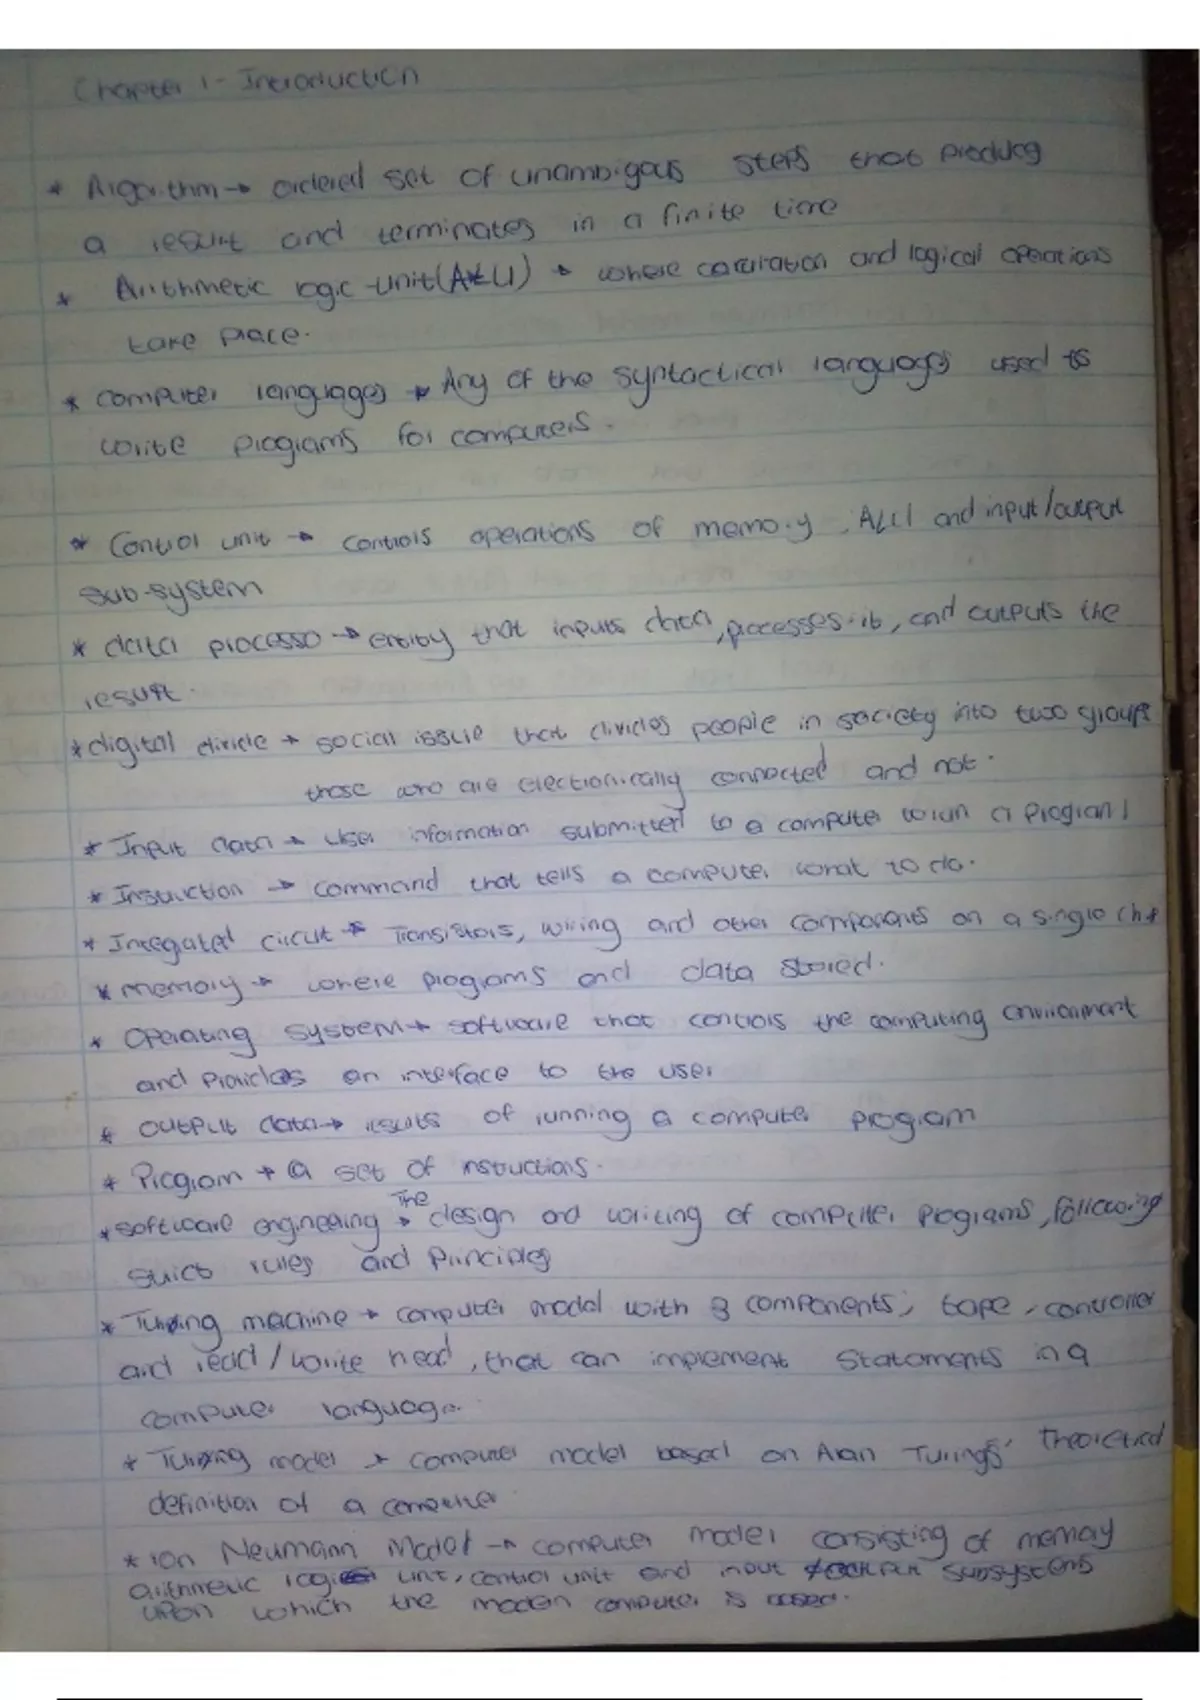 Chapter 1 - Introduction
* Algorithm → ordered set of unambigous steps that produceg
a result and terminates in a finite time
* Arithmetic logic unit (ALU) → where calculation and logical operations
take place.
* computer languages → Any of the syntactical languages used to
write programs for computers.
* Control unit → controls operations of memory, ALU and input/output
sub-system
* data processo → entity that inputs data, processes it, and outputs the
result.
* digital divide → social issue that divides people in society into two groups
those who are electronically connected and not.
* Input data → user information submitted to a computer to run a program
* Instruction → command that tells a computer what to do.
* Integated circut → Transistors, wiring and other components on a single chip
* memory → where programs and data stored.
* Operating system → software that controls the computing environment
and provides an interface to the user
* output data → results of running a computer program
* Program → a set of instructions.
* software engineering → The design and writing of computer programs, following
strict rules and principles
* Turing machine → computer model with 3 components; tape, controller
and read / write head, that can implement statements in a
computer language.
* Turing model → computer model based on Alan Turings' theoretical
definition of a computer
* Von Neumann Model → computer model consisting of memory
arithmetic logic unit, control unit and input output subsystems
upon which the modern computer is based.